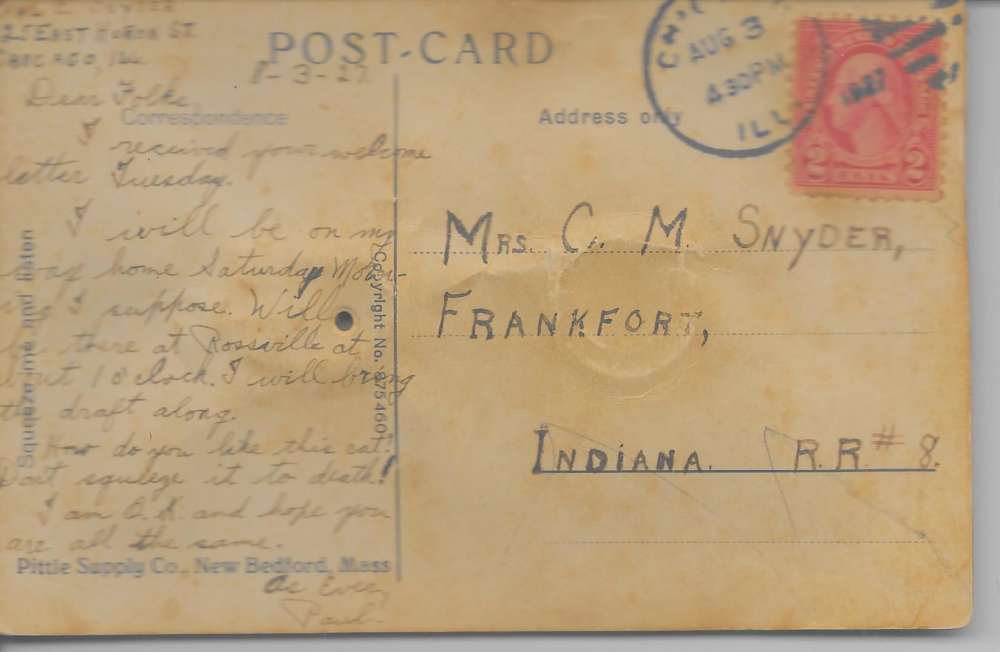 EAST HURON ST.
CHICAGO, ILL.
8-3-27.
POST-CARD
Correspondence
Address only
Dear Folks,
I received your welcome
letter Tuesday.
I will be on my
way home Saturday Morn-
ing I suppose. Will
be there at Rossville at
about 1 o'clock. I will bring
the draft along.
How do you like this cat?
Don't squeeze it to death!
I am O.K. and hope you
are all the same.
As Ever,
Paul.
Squeeze me and listen
Copyright No. 875460
Pittle Supply Co., New Bedford, Mass
AUG 3
4 30 PM
ILL.
1927
2 2
MRS. C. M. SNYDER,
FRANKFORT,
INDIANA. R.R. # 8.